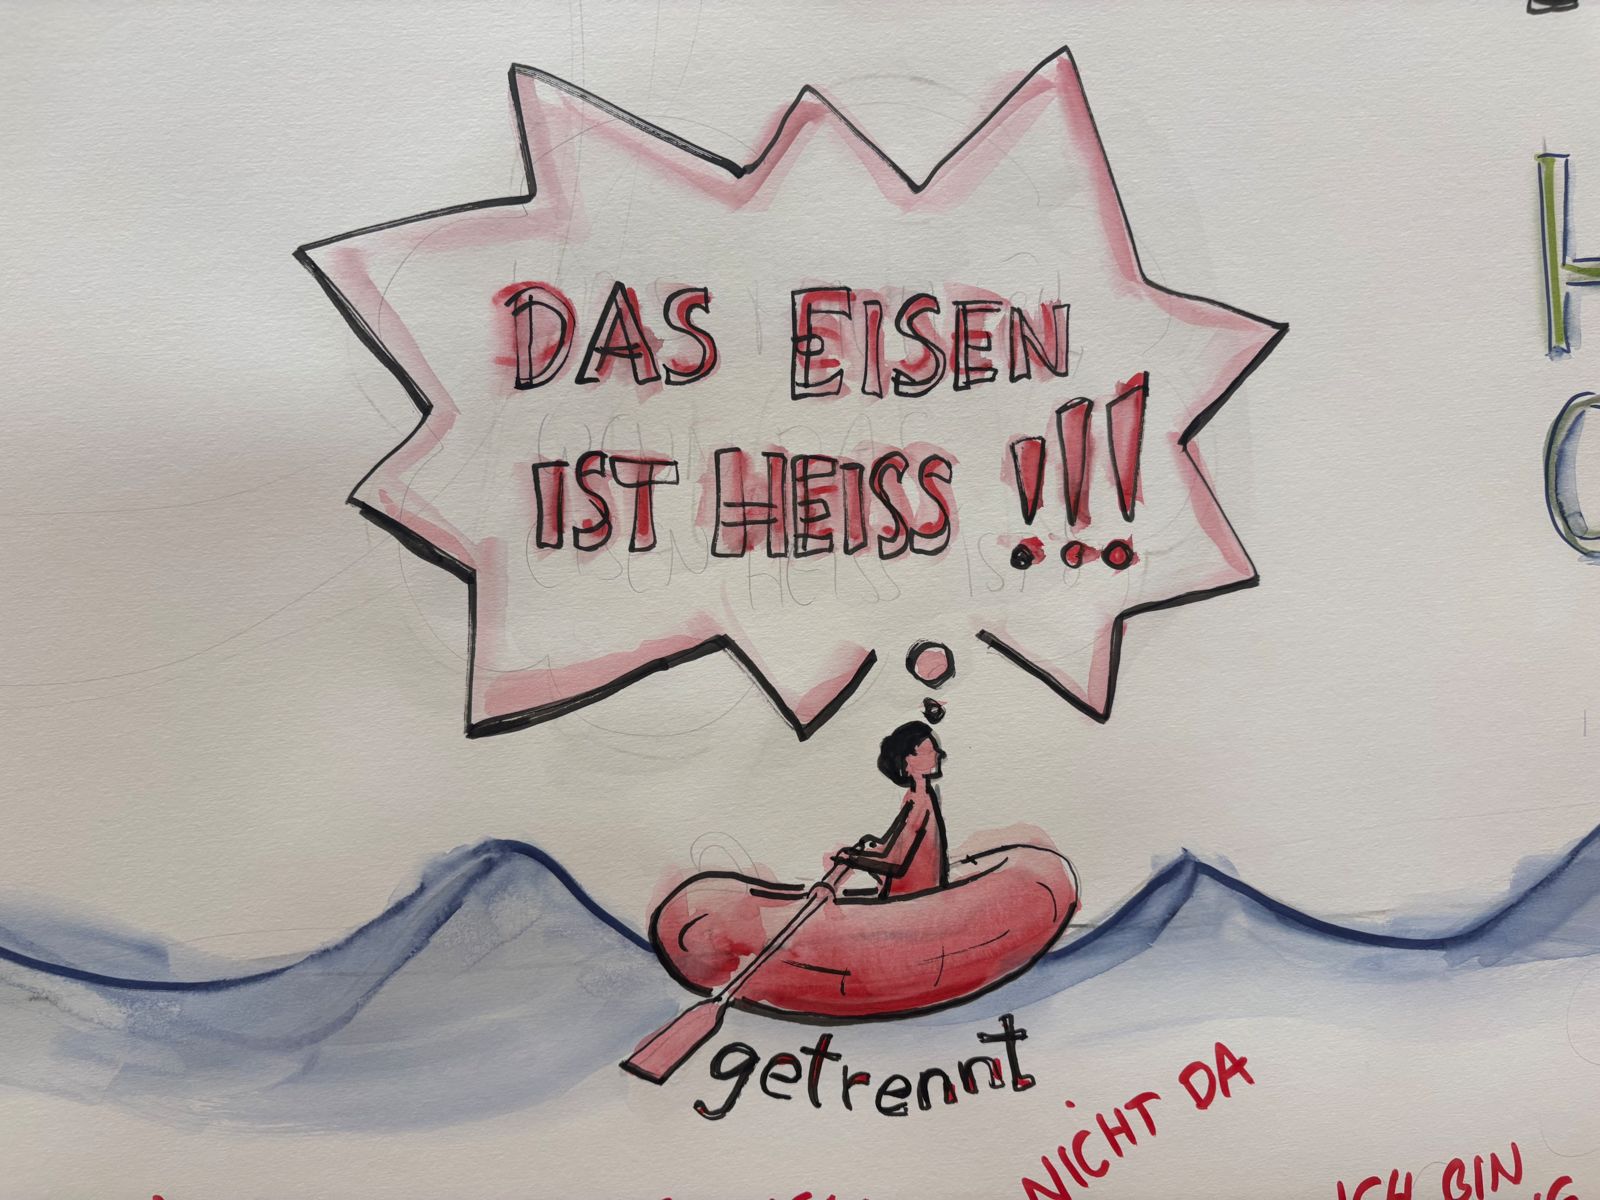 DAS EISEN
IST HEISS !!!
getrennt
NICHT DA
ICH BIN